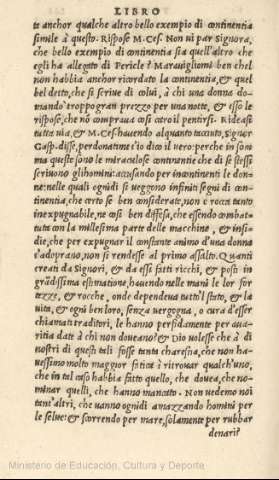 LIBRO
te anchor qualche altro bello exempio di continentia
simile à questo. Rispose M. Ces. Non ui par Signora,
che bello exempio di continentia sia quell'altro che
egli ha allegato di Pericle? Marauigliomi ben chel
non habbia anchor ricordato la continentia, & quel
bel detto, che si scriue di colui, à chi una donna do-
mandò troppo gran prezzo per una notte, & esso le
rispose, che nō compraua così caro il pentirsi. Rideasi
tutta uia, & M. Ces. hauendo alquanto tacciuto, Signor
Gasp. disse, perdonatime s'io dico il uero: perche in som
ma queste sono le miraculose continentie che di se stessi
scriuono gli homini: accusando per incontinenti le don-
ne: nelle quali ogni dì si ueggono infiniti segni di con-
tinentia, che certo se ben considerate, non è rocca tanto
inexpugnabile, ne così ben diffesa, che essendo combat-
tuta con la millesima parte delle macchine, & insi-
die, che per expugnar il constante animo d'una donna
s'adoprano, non si rendesse al primo assalto. Quanti
creati da Signori, & da essi fatti ricchi, & posti in
grādissima estimatione, hauendo nelle mani le lor for
tezze, & rocche, onde dependeua tutto'l stato, & la
uita, & ogni ben loro, senza uergogna, o cura d'esser
chiamati traditori, le hanno perfidamente per aua-
ritia date à chi non doueano? & Dio uolesse che à dì
nostri di questi tali fosse tanta charestia, che non ha-
uessimo molto maggior fatica à ritrouar qualch'uno,
che in tal caso habbia fatto quello, che douea, che no-
minar quelli, che hanno mancato. Non uedemo noi
tant'altri, che uanno ogni dì amazzando homini per
le selue: & scorrendo per mare, solamente per rubbar
denari?
Ministerio de Educación, Cultura y Deporte